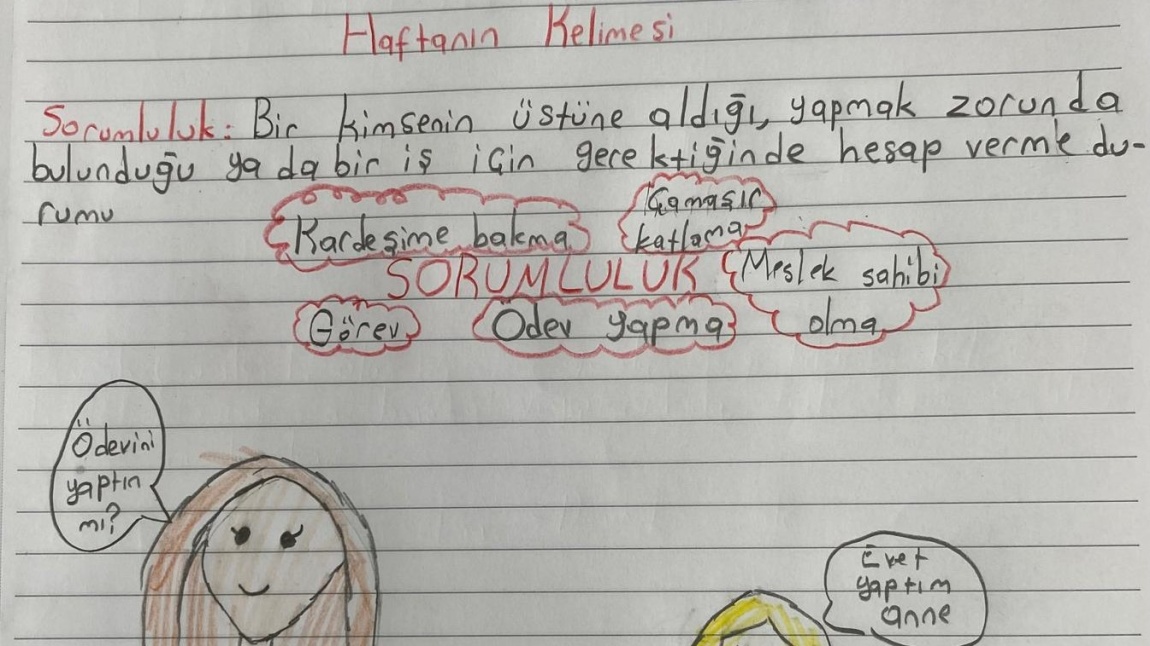 Haftanın Kelimesi
Sorumluluk: Bir kimsenin üstüne aldığı, yapmak zorunda
bulunduğu ya da bir iş için gerektiğinde hesap verme du-
rumu
Kardeşime bakma
Çamaşır
katlama
SORUMLULUK
Meslek sahibi
olma
Görev
Ödev yapma
Ödevini
yaptın
mı?
Evet
yaptım
anne